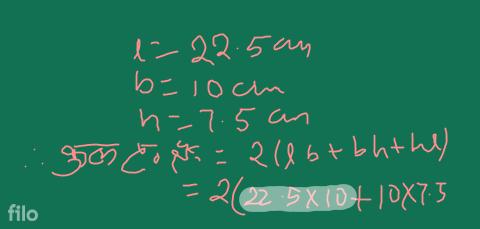 l = 22.5 cm
b = 10 cm
h = 7.5 cm
∴ = 2(lb + bh + hl)
= 2(22.5×10 + 10×7.5
filo